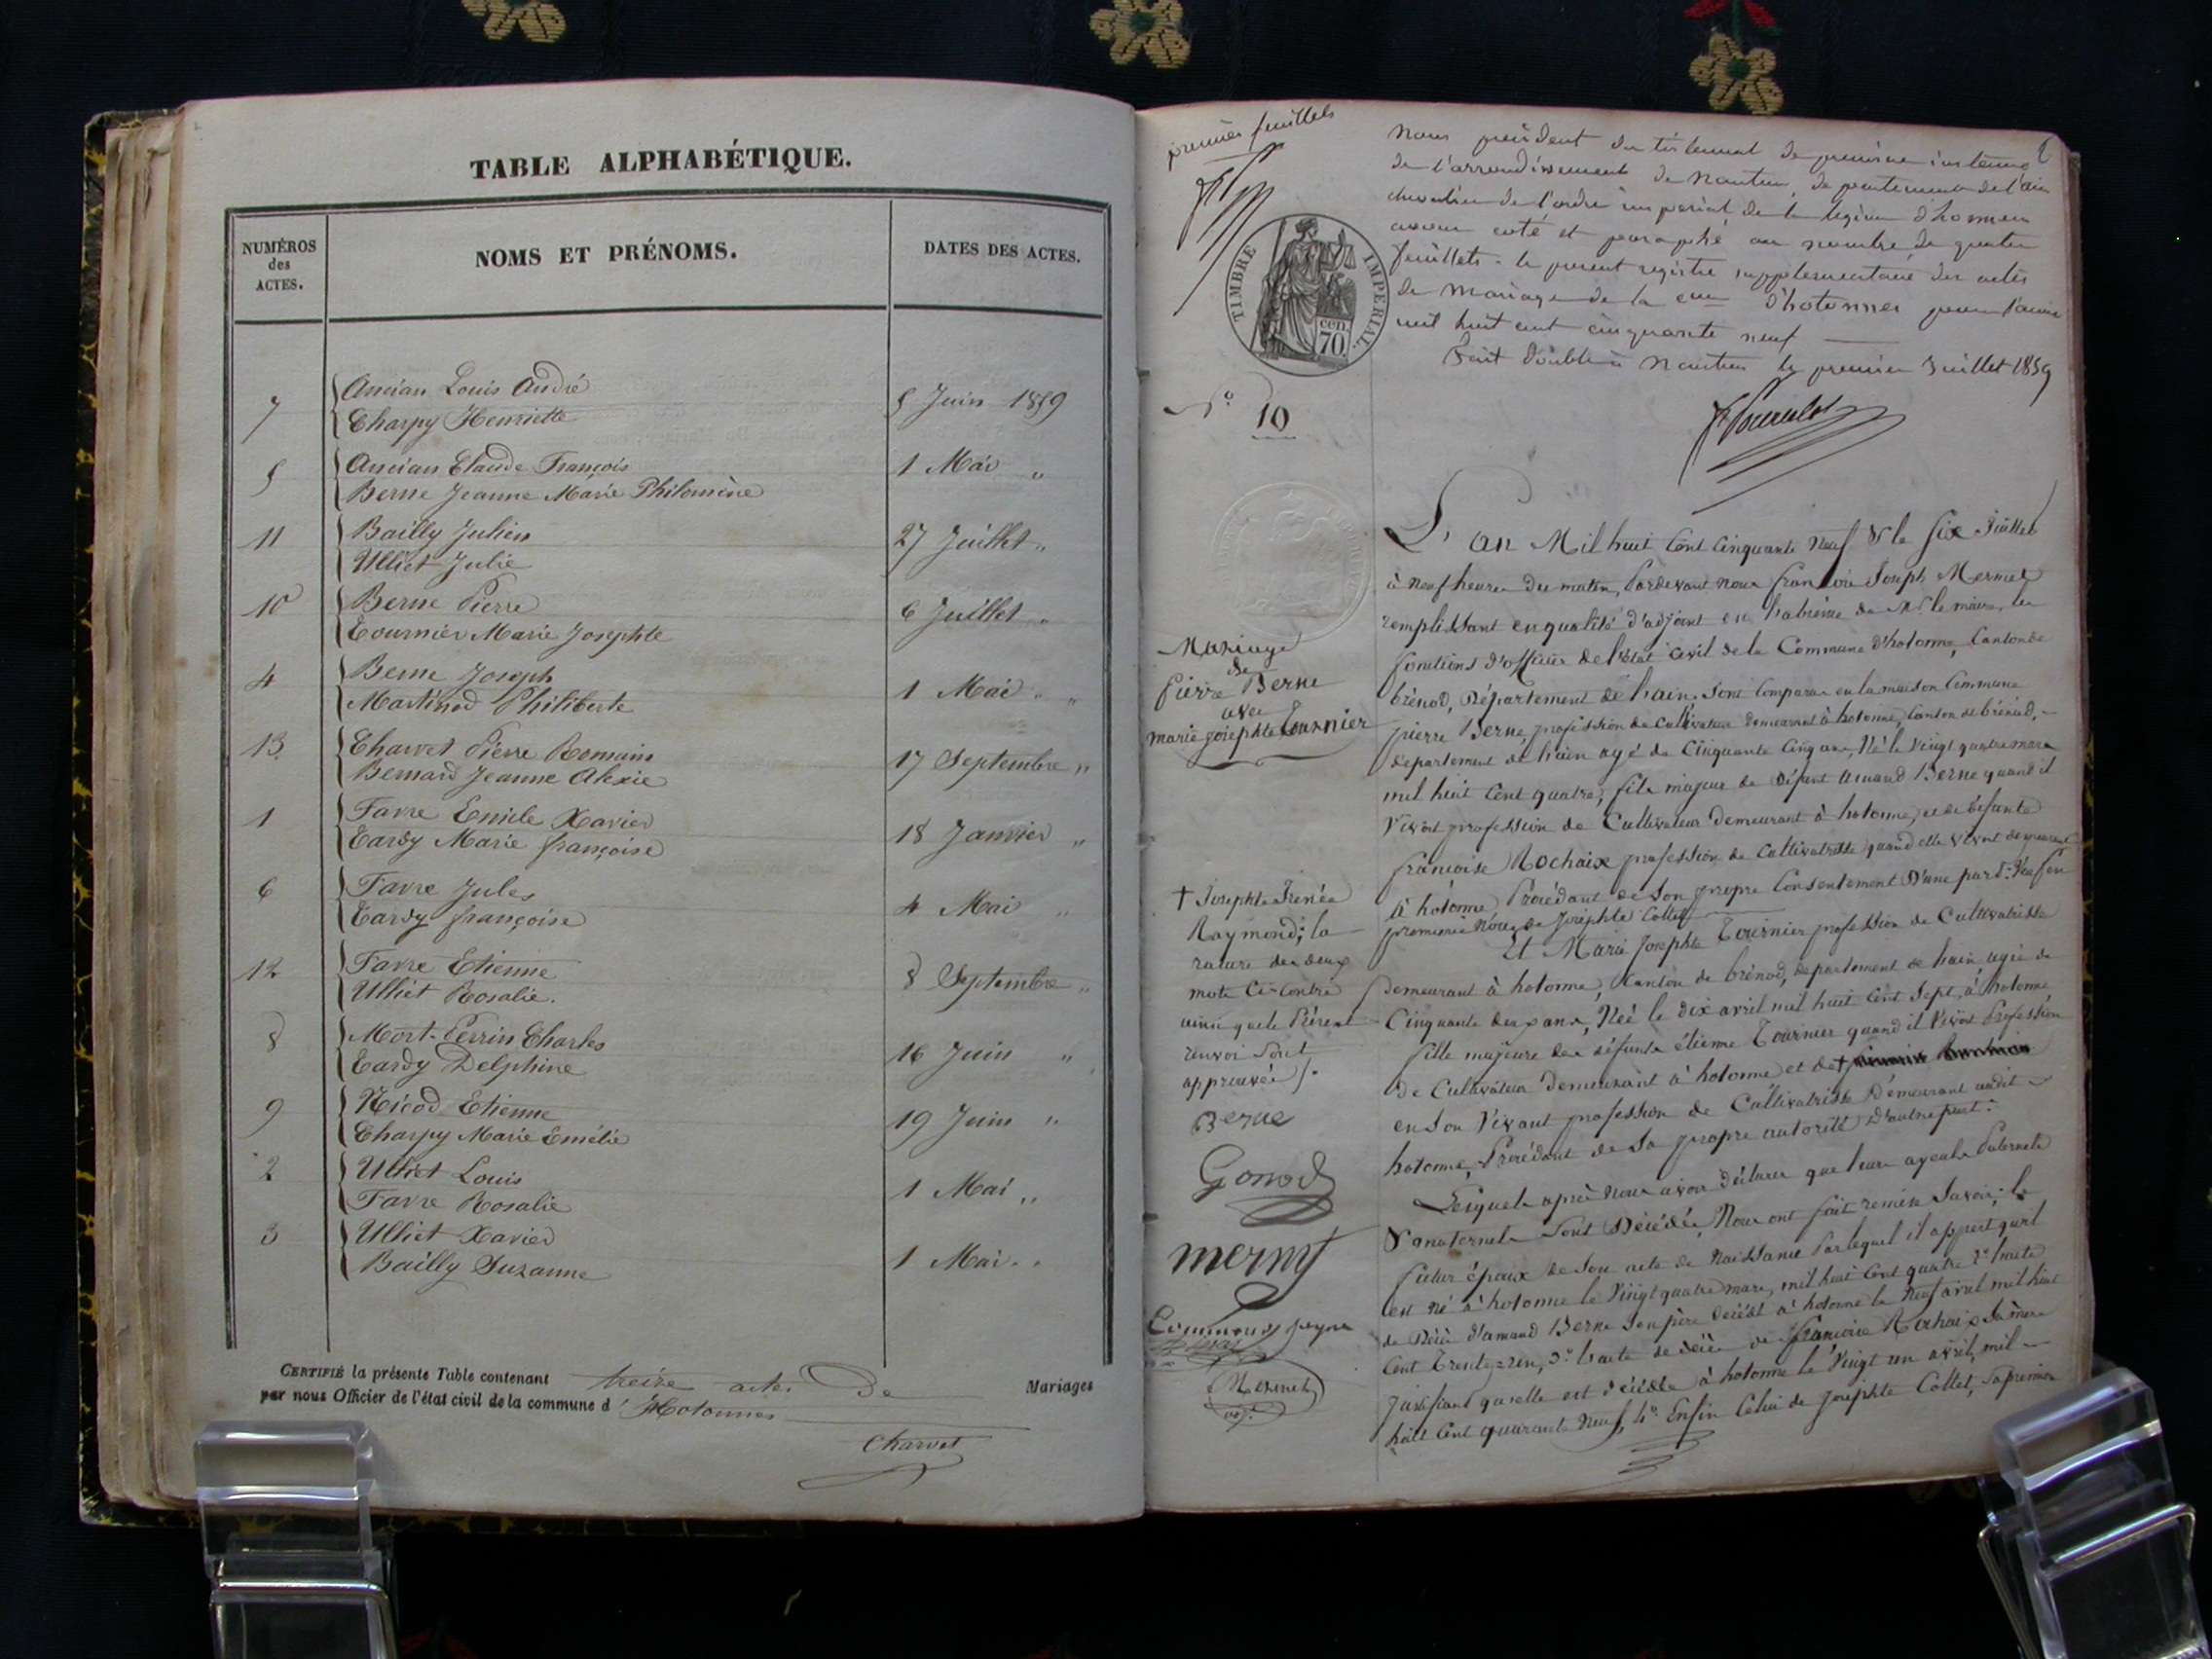 TABLE ALPHABÉTIQUE.
NUMÉROS
des
ACTES.
NOMS ET PRÉNOMS.
DATES DES ACTES.
7 Ancian Louis André 5 Juin 1859
Charpy Henriette
5 Ancian Claude François 1 Mai "
Berne Jeanne Marie Philomène
11 Bailly Julien 27 Juillet "
Ulliet Julie
10 Berne Pierre 6 Juillet "
Tournier Marie Josephte
4 Berne Joseph 1 Mai " "
Martinod Philiberte
13 Charvet Pierre Romain 17 Septembre "
Bernard Jeanne Alexie
1 Favre Emile Xavier 18 Janvier "
Tardy Marie françoise
6 Favre Jules 4 Mai "
Tardy françoise
12 Favre Etienne 8 Septembre "
Ulliet Rosalie.
8 Mort-Perrin Charles 16 Juin "
Tardy Delphine
9 Nicod Etienne 19 Juin "
Charpy Marie Emélie
2 Ulliet Louis 1 Mai "
Favre Rosalie
3 Ulliet Xavier 1 Mai "
Bailly Suzanne
CERTIFIÉ la présente Table contenant treize actes de Mariages
par nous Officier de l'état civil de la commune d'Hotonnes
Charvet
premier feuillets
TIMBRE IMPÉRIAL.
cen.
70
Nous président du tribunal de première instance
de l'arrondissement de Nantua, département de l'ain
chevalier de l'ordre impérial de la légion d'honneur
avons coté et paraphé au nombre de quatre
feuillets le present registre supplementaire des actes
de mariage de la cne d'hotonnes pour l'année
mil huit cent cinquante neuf
Fait double à Nantua le premier Juillet 1859
N° 10
Mariage
de
pierre Berne
avec
marie josephte tournier
L'an Mil huit Cent Cinquante Neuf & le Six Juillet
à neuf heures du matin, Pardevant nous françois Joseph Mermet
remplissant en qualité d'adjoint en l'absence de Mr le maire, les
fonctions d'officier de l'état Civil de la Commune d'hotonne, Canton de
brénod, Département de l'ain. Sont Comparus en la maison Commune
pierre Berne, profession de Cultivateur demeurant à hotonne, Canton de brénod,
departement de l'ain agé de Cinquante Cinq ans, Né le Vingt quatre mars
mil huit Cent quatre, fils majeur de défunt amand Berne quand il
Vivoit profession de Cultivateur demeurant à hotonne, et de défunte
françoise Rochaix profession de Cultivatrice quand elle Vivoit demeurant
à hotonne, Procédant de Son propre Consentement D'une part. Veuf en
premiere Noce de Josephte Collet
Et Marie Josephte Tournier profession de Cultivatrice
Demeurant à hotonne, Canton de brénod, departement de l'ain agée de
Cinquante deux ans, Née le dix avril mil huit Cent Sept, à hotonne
fille majeure de défunt étienne Tournier quand il Vivoit Profession
de Cultivateur Demeurant à hotonne et de †
en Son Vivant profession de Cultivatrice Demeurant audit
hotonne, Procédant de Sa propre autorité D'autre part.
Lesquels après nous avoir déclaré que leurs ayeuls Paternels
& maternels Sont Décédés, Nous ont fait remise Savoir; le
futur époux de Son acte de Naissance Par lequel il appert qu'il
est né à hotonne le Vingt quatre mars, mil huit Cent quatre 2° l'acte
de Décès d'amand Berne Son père décédé à hotonne le Neuf avril mil huit
Cent Trente-, 3° l'acte de décès de françoise Rochaix Sa mère
Justifiant qu'elle est décédée à hotonne le Vingt un avril, mil
huit Cent quarante Neuf, 4° Enfin Celui de Josephte Collet, Sa premiere
† Josephte Irenée
Raymond; la
rature des deux
mots Ci-contre
ainsi que le Présent
renvoi Sont
approuvés.
Berne
Gonod
mermet
Mermet
adj.